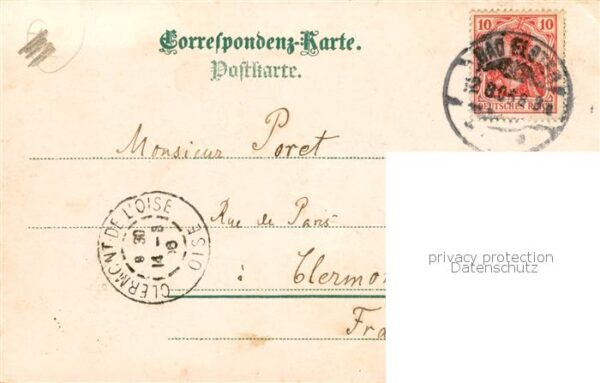 Correspondenz-Karte.
Postkarte.
10 10
DEUTSCHES REICH
BAD ELSTER
Monsieur Poret
Rue de Paris
à Clermon
Fra
CLERMONT DE L'OISE
OISE
8 30
14 - 8
privacy protection
Datenschutz